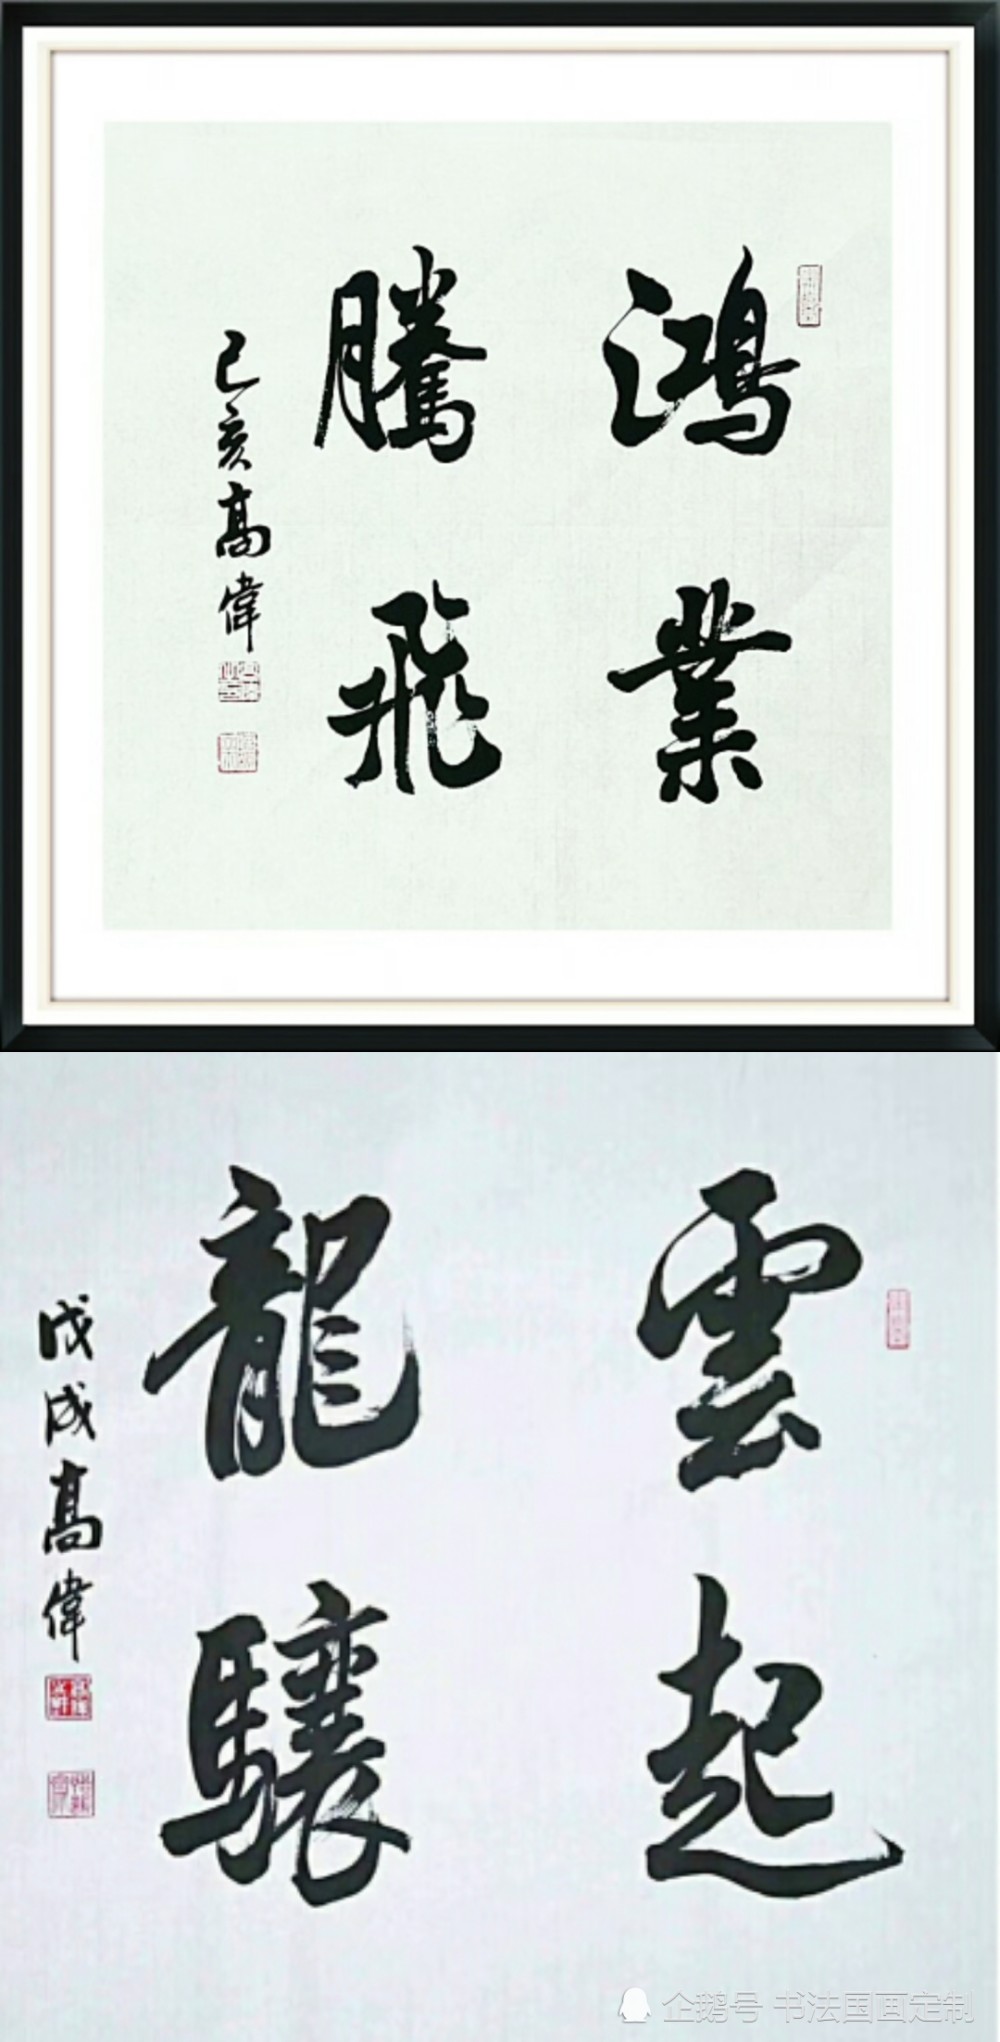 鴻業
騰飛
己亥高偉
雲起
龍驤
戊戌高偉
企鹅号 书法国画定制